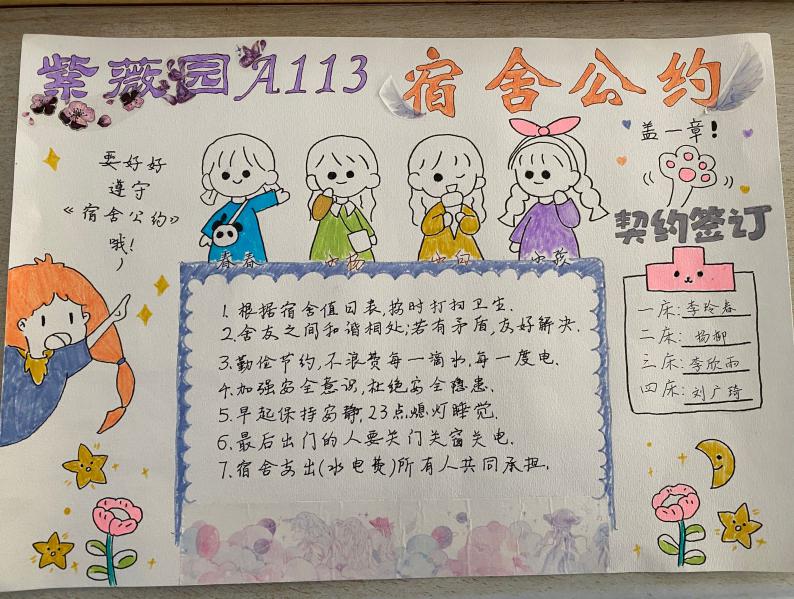 紫薇园A113 宿舍公约
要好好
遵守
《宿舍公约》
哦！
盖一章！
契约签订
春春 小杨 小白 小孩
1. 根据宿舍值日表,按时打扫卫生.
2. 舍友之间和谐相处;若有矛盾,友好解决.
3. 勤俭节约,不浪费每一滴水,每一度电.
4. 加强安全意识,杜绝安全隐患.
5. 早起保持安静,23点熄灯睡觉.
6. 最后出门的人要关门关窗关电.
7. 宿舍支出(水电费)所有人共同承担.
一床:李玲春
二床: 杨柳
三床:李欣雨
四床: 刘广琦